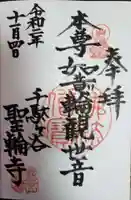 奉拝
本尊如意輪観世音
千駄ヶ谷
聖輪寺
令和二年
十一月四日